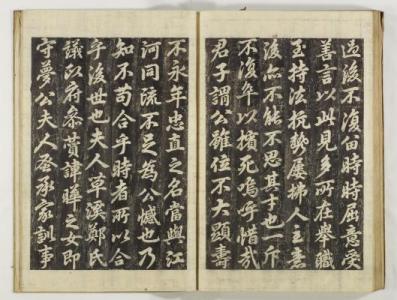 過後不復由時時屈意受
善言以此見多所在舉職
至持法抗勢屢拂人主意
後亦不能不思其才也一斥
不復卒以擯死嗚呼惜哉
君子謂公雖位不大顯壽
不永年忠直之名當與江
河同流不足為公憾也乃
知不苟合乎時者所以合
乎後世也夫人草溪鄭氏
議政府參贊諱暉之女即
守夢公夫人登承家訓事